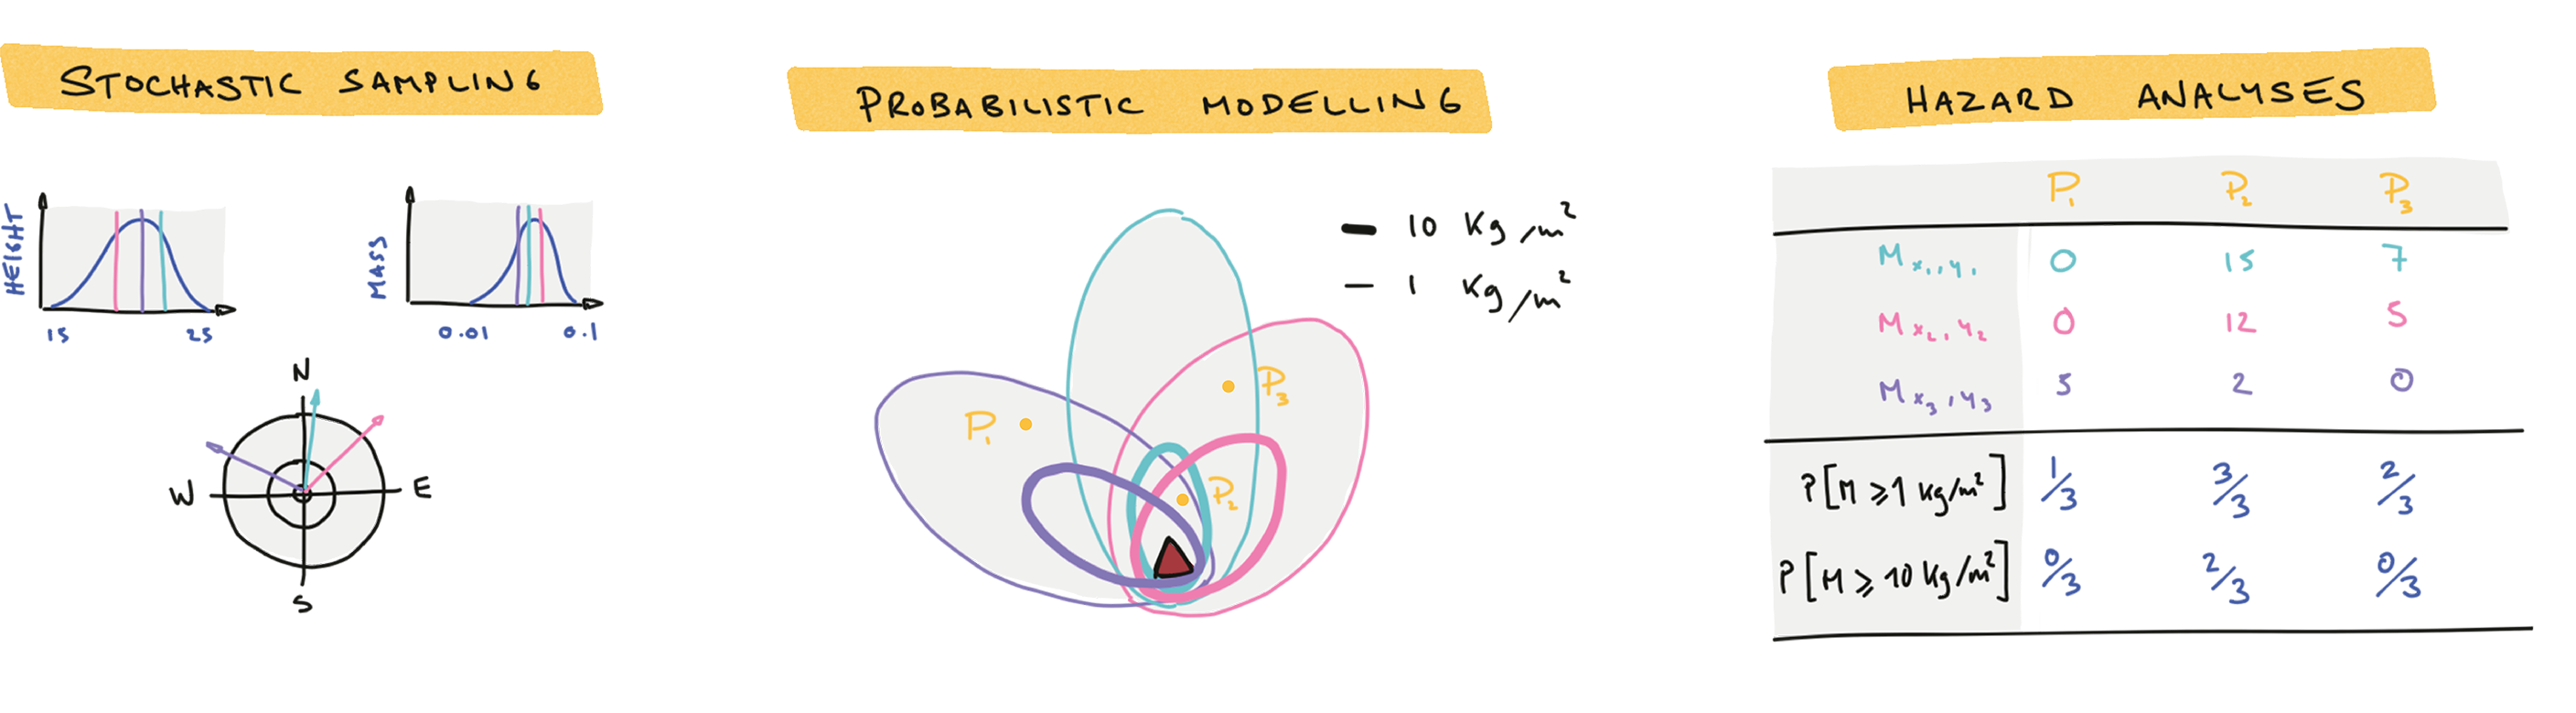 STOCHASTIC SAMPLING
HEIGHT
15 25
MASS
0.01 0.1
N
W E
S
PROBABILISTIC MODELLING
10 Kg/m²
1 Kg/m²
P₁
P₂
P₃
HAZARD ANALYSES
P₁ P₂ P₃
M x₁,y₁ 0 15 7
M x₂,y₂ 0 12 5
M x₃,y₃ 5 2 0
P[M ⩾ 1 Kg/m²] 1/3 3/3 2/3
P[M ⩾ 10 Kg/m²] 0/3 2/3 0/3